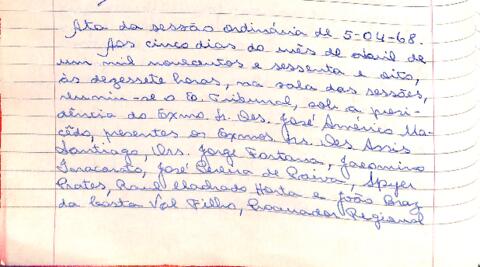 Ata da sessão ordinária de 5-04-68.
Aos cinco dias do mês de abril de
um mil novecentos e sessenta e oito,
às dezessete horas, na sala das sessões,
reuniu-se o E. Tribunal, sob a presi-
dência do Exmo. Sr. Des. José Américo Ma-
cêdo, presentes os Exmos. Srs. Des. Assis
Santiago, Drs. Jorge Fontana, Jacomino
Inacarato, José Pereira de Paiva, Spyer
Prates, Raul Machado Horta e João Braz
da Costa Val Filho, Procurador Regional